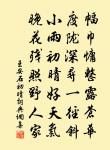 幅巾慵整露蒼華
度隴深尋一徑斜
小雨初晴好天氣
晚花殘照野人家
王安石初晴詩